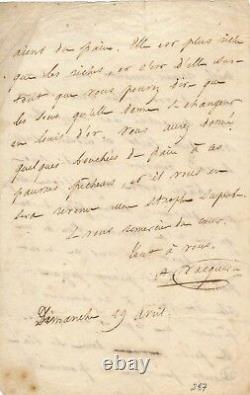 aient du pain. Elle est plus riche
que les riches, et c'est d'elle sur-
tout que vous pourrez dire que
les sous qu'elle donne se changent
en louis d'or. Vous aurez donné
quelques bouchées de pain à ces
pauvres pêcheurs, et il vous en
sera revenu une strophe superbe.
Je vous remercie du cœur.
Tout à vous.
A. Vacquerie
Dimanche 29 avril.
287